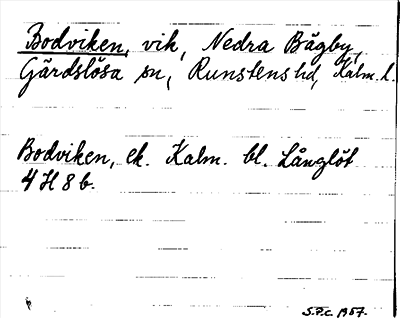 Bodviken, vik, Nedra Bägby,
Gärdslösa sn, Runstens hd, Kalm. l.
Bodviken, ek. Kalm. bl. Långlöt
4 H 8 b.
S.F.C. 1957.